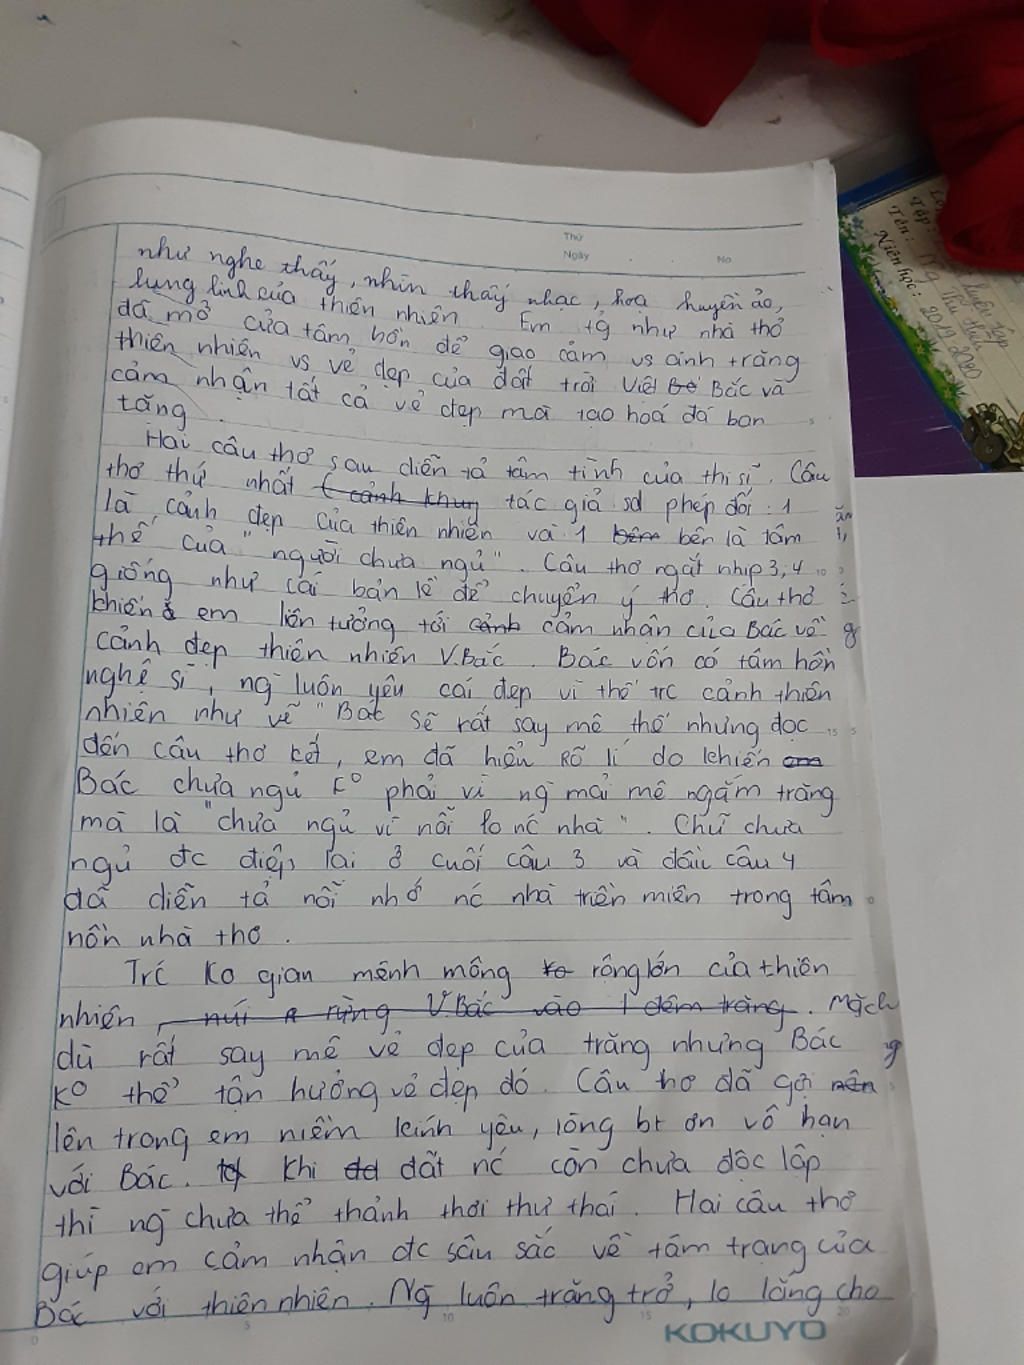 Thứ
Ngày . . No
như nghe thấy, nhìn thấy nhạc, họa huyền ảo,
lung linh của thiên nhiên. Em tg như nhà thơ
đã mở cửa tâm hồn để giao cảm vs ánh trăng
thiên nhiên vs vẻ đẹp của đất trời Việt Bắc và
cảm nhận tất cả vẻ đẹp mà tạo hoá đã ban
tặng.
Hai câu thơ sau diễn tả tâm tình của thi sĩ. Câu
thơ thứ nhất (cảnh khuy tác giả sd phép đối: 1
là cảnh đẹp của thiên nhiên và 1 bêm bên là tâm
thế của "người chưa ngủ". Câu thơ ngắt nhịp 3, 4
giống như cái bản lề để chuyển ý thơ. Câu thơ
khiến em liên tưởng tới cảnh cảm nhận của Bác về
cảnh đẹp thiên nhiên V.Bắc. Bác vốn có tâm hồn
nghệ sĩ, ng luôn yêu cái đẹp vì thế trc cảnh thiên
nhiên như vẽ "Bác sẽ rất say mê thế nhưng đọc
đến câu thơ kết, em đã hiểu rõ lí do khiến em
Bác chưa ngủ ko phải vì ng mải mê ngắm trăng
mà là "chưa ngủ vì nỗi lo nc nhà". Chữ chưa
ngủ đc điệp lại ở cuối câu 3 và đầu câu 4
đã diễn tả nỗi nhớ nc nhà triền miên trong tâm
hồn nhà thơ.
Trc ko gian mênh mông ko rộng lớn của thiên
nhiên, núi rừng V.Bắc vào 1 đêm trăng. Mặch
dù rất say mê vẻ đẹp của trăng nhưng Bác
ko thể tận hưởng vẻ đẹp đó. Câu thơ đã gợi nên
lên trong em niềm kính yêu, lòng bt ơn vô hạn
với Bác. Khi đđ đất nc còn chưa độc lập
thì ng chưa thể thảnh thơi thư thái. Hai câu thơ
giúp em cảm nhận đc sâu sắc về tâm trạng của
Bác với thiên nhiên. Ng luôn trăng trở, lo lắng cho
KOKUYO
Tập:
Tên: Ng Thị
Niên học: 2019 2020